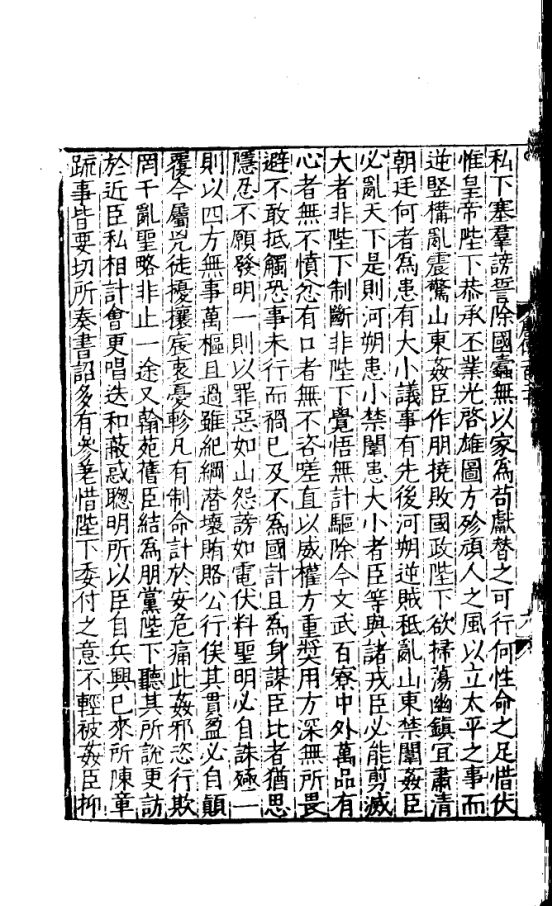 私下塞羣謗誓除國蠹無以家爲苟獻替之可行何性命之足惜伏
惟皇帝陛下恭承丕業光啓雄圖方殄頑人之風以立太平之事而
逆竪構亂震驚山東姦臣作朋撓敗國政陛下欲掃蕩幽鎮宜肅清
朝廷何者爲患有大小議事有先後河朔逆賊秪亂山東禁闈姦臣
必亂天下是則河朔患小禁闈患大小者臣等與諸戎臣必能剪滅
大者非陛下制斷非陛下覺悟無計驅除今文武百寮中外萬品有
心者無不憤忿有口者無不咨嗟直以威權方重奬用方深無所畏
避不敢抵觸恐事未行而禍已及不爲國計且爲身謀臣比者猶思
隱忍不願發明一則以罪惡如山怨謗如電伏料聖明必自誅殛一
則以四方無事萬樞且過雖紀綱潜壞賄賂公行俟其貫盈必自顛
覆今屬兇徒擾攘宸衷憂軫凡有制命計於安危痛此姦邪恣行欺
罔干亂聖略非止一途又翰苑舊臣結爲朋黨陛下聽其所説更訪
於近臣私相計會更唱迭和蔽惑聰明所以臣自兵興已來所陳章
疏事皆要切所奏書詔多有參差惜陛下委付之意不輕被姦臣抑